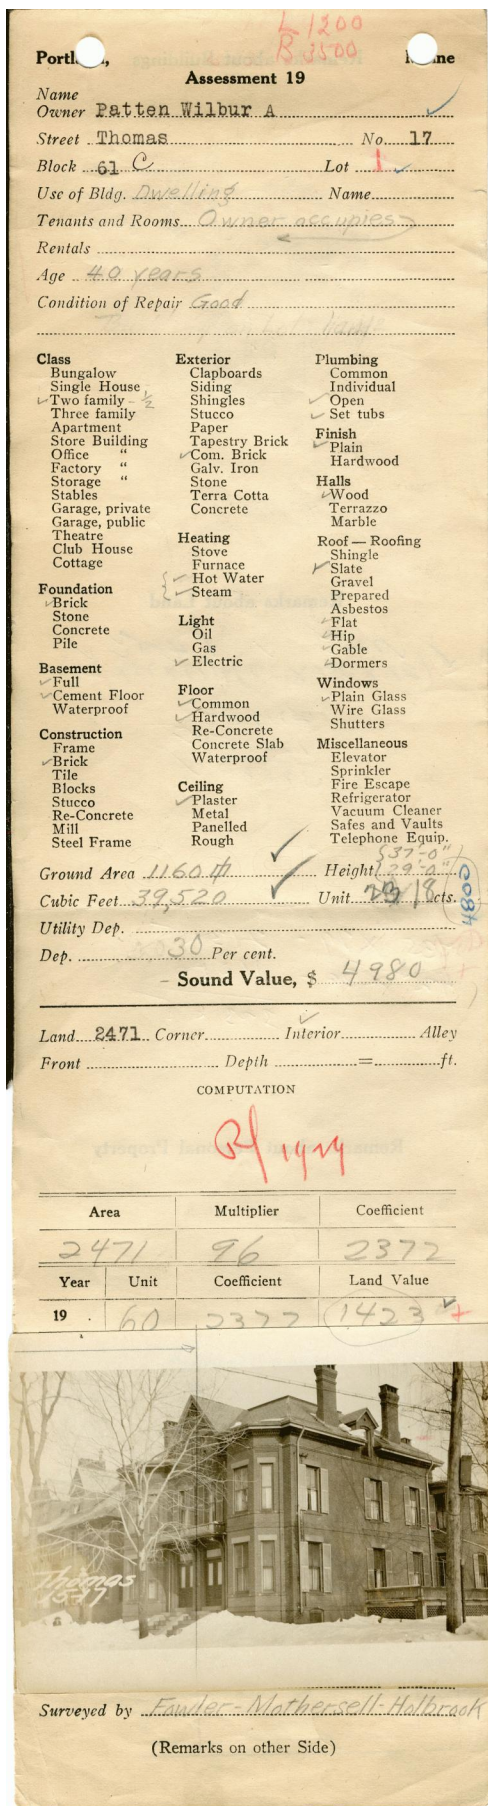 L 1200
B 3500
Portl , ine
Assessment 19
Name
Owner Patten Wilbur A
Street Thomas No. 17
Block 61 C Lot 1
Use of Bldg. Dwelling Name
Tenants and Rooms Owner occupies
Rentals
Age 40 years
Condition of Repair Good
Class
Bungalow
Single House
Two family - 1/2
Three family
Apartment
Store Building
Office "
Factory "
Storage "
Stables
Garage, private
Garage, public
Theatre
Club House
Cottage
Foundation
Brick
Stone
Concrete
Pile
Basement
Full
Cement Floor
Waterproof
Construction
Frame
Brick
Tile
Blocks
Stucco
Re-Concrete
Mill
Steel Frame
Exterior
Clapboards
Siding
Shingles
Stucco
Paper
Tapestry Brick
Com. Brick
Galv. Iron
Stone
Terra Cotta
Concrete
Heating
Stove
Furnace
Hot Water
Steam
Light
Oil
Gas
Electric
Floor
Common
Hardwood
Re-Concrete
Concrete Slab
Waterproof
Ceiling
Plaster
Metal
Panelled
Rough
Plumbing
Common
Individual
Open
Set tubs
Finish
Plain
Hardwood
Halls
Wood
Terrazzo
Marble
Roof — Roofing
Shingle
Slate
Gravel
Prepared
Asbestos
Flat
Hip
Gable
Dormers
Windows
Plain Glass
Wire Glass
Shutters
Miscellaneous
Elevator
Sprinkler
Fire Escape
Refrigerator
Vacuum Cleaner
Safes and Vaults
Telephone Equip.
37'-0"
Ground Area 1160 Height 29'-0"
Cubic Feet 39,520 Unit 18 cts.
Utility Dep.
Dep. 30 Per cent.
Sound Value, $ 4980
Land 2471 Corner Interior Alley
Front Depth = ft.
COMPUTATION
1929
Area Multiplier Coefficient
2471 96 2372
Year Unit Coefficient Land Value
19 . 60 2372 1423
Thomas
15-17
Surveyed by Fowler-Mothersell-Holbrook
(Remarks on other Side)